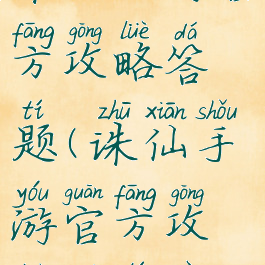 fāng gōng lüè dá
方攻略答
tí zhū xiān shǒu
题(诛仙手
yóu guān fāng gōng
游官方攻